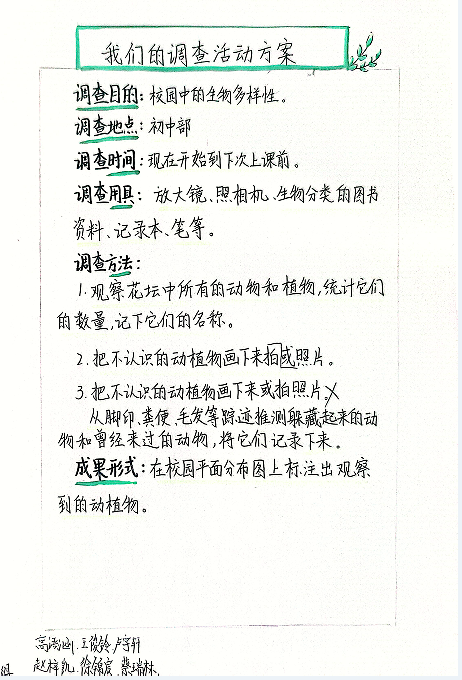 我们的调查活动方案
调查目的：校园中的生物多样性。
调查地点：初中部
调查时间：现在开始到下次上课前。
调查用具：放大镜、照相机、生物分类的图书
资料、记录本、笔等。
调查方法：
1.观察花坛中所有的动物和植物，统计它们
的数量，记下它们的名称。
2.把不认识的动植物画下来拍或照片。
3.把不认识的动植物画下来或拍照片，
从脚印、粪便、毛发等踪迹推测躲藏起来的动
物和曾经来过的动物，将它们记录下来。
成果形式：在校园平面分布图上标注出观察
到的动植物。